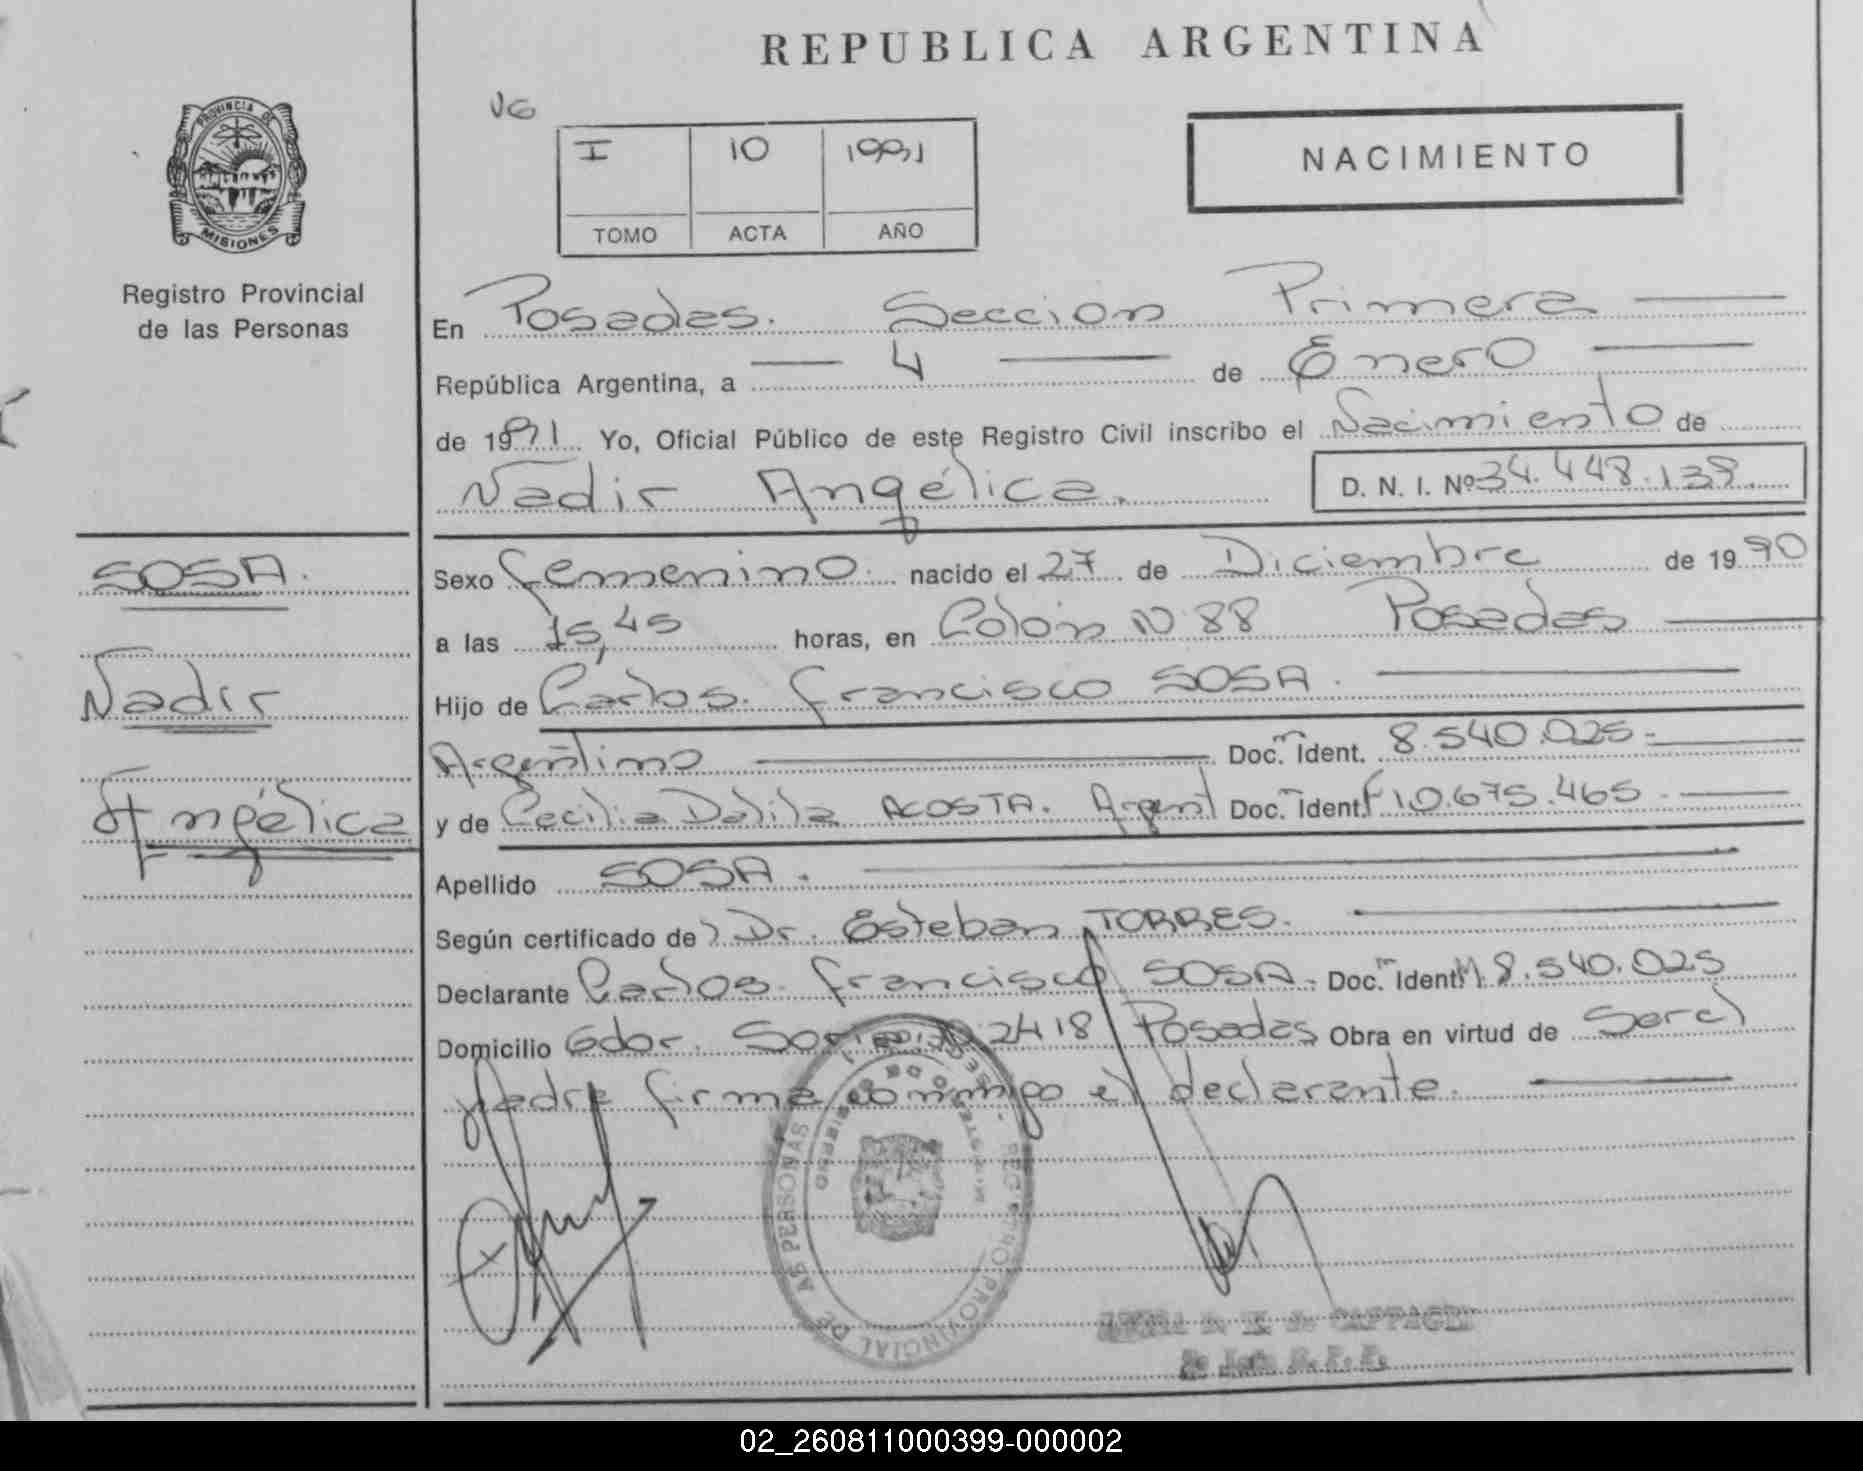 REPUBLICA ARGENTINA
VG
PROVINCIA DE
MISIONES
Registro Provincial
de las Personas
I 10 1991
TOMO ACTA AÑO
NACIMIENTO
En Posadas. Seccion Primera
República Argentina, a 4 de Enero
de 1991 Yo, Oficial Público de este Registro Civil inscribo el Nacimiento de
Nadir Angélica. D. N. I. Nº 34.448.139.
SOSA.
Nadir
Angélica
Sexo femenino. nacido el 27 de Diciembre de 1990
a las 15,45 horas, en Colón Nº 88 Posadas
Hijo de Carlos. Francisco SOSA.
Argentino Doc. Ident. 8.540.025-
y de Cecilia Dalila ACOSTA. Argent Doc. Ident. F 10.675.465.
Apellido SOSA.
Según certificado de Dr. Esteban TORRES.
Declarante Carlos. Francisco SOSA. Doc. Ident. M. 8.540.025
Domicilio Gdor. 2418 Posadas Obra en virtud de Ser el
padre firma conmigo el declarante.
REGISTRO PROVINCIAL DE LAS PERSONAS
MINISTERIO DE GOBIERNO
02_260811000399-000002